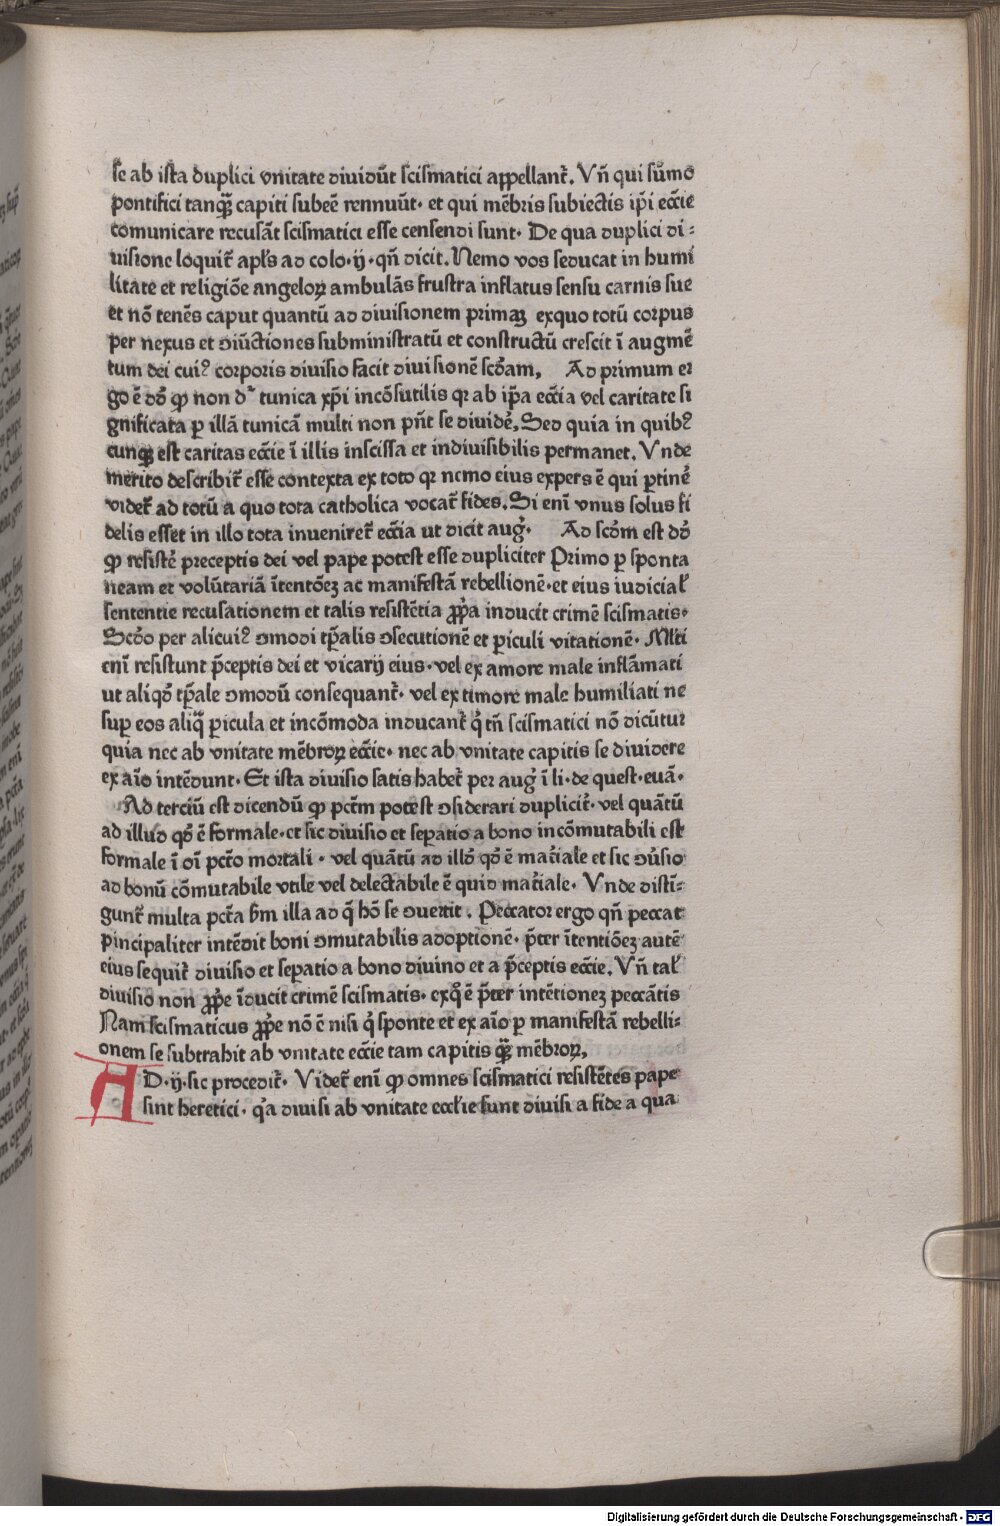 se ab ista duplici vnitate diuidūt scismatici appellant̄. Vn̄ qui sūmo
pontifici tanqꝫ capiti subeē rennuūt· et qui mēbris subiectis ip̄i ecc̄ie
comunicare recusāt scismatici esse censendi sunt· De qua duplici di⸗
uisione loquit̄ apl̄s ad colo·ij·qn̄ dicit. Nemo vos seducat in humi
litate et religiōe angeloꝝ ambulās frustra inflatus sensu carnis sue
et nō tenēs caput quantū ad diuisionem primaꝫ exquo totū corpus
per nexus et ɔiūctiones subministratū et constructū crescit ī augmē
tum dei cui⁹ corporis diuisio facit diuisionē scd̄am, Ad primum er
go ē dd̄ ꝙ non dr̄ tunica xp̄i incōsutilis qꝛ ab ip̄a ecc̄ia vel caritate si
gnificata ꝑ illā tunicā multi non pn̄t se diuidē, Sed quia in quib⁹
cunqꝫ est caritas ecc̄ie ī illis inscissa et indiuisibilis permanet. Vnde
merito describit̄ esse contexta ex toto qꝛ nemo eius expers ē qui ꝑtinē
videt̄ ad totū a quo tota catholica vocat̄ fides. Si enī vnus solus fi
delis esset in illo tota inueniret̄ ecc̄ia ut dicit aug̉· Ad scd̄m est dd̄
ꝙ resistē preceptis dei vel pape potest esse dupliciter Primo ꝑ sponta
neam et volūtariā ītentōeꝫ ac manifestā rebellionē·et eius iudicial̄
sententie recusationem et talis resistētia ꝓp̄a inducit crimē scismatis·
Scd̄o per alicui⁹ ɔmodi tꝑalis ɔsecutionē et ꝑiculi vitationē· Ml̄ti
enī resistunt p̄ceptis dei et vicarij eius·vel ex amore male inflāmati
ut aliqd̄ tꝑale ɔmodū consequant̄· vel ex timore male humiliati ne
suꝑ eos aliq̄ ꝑicula et incōmoda inducant̄ q̇ tn̄ scismatici nō dicūtur
quia nec ab vnitate mēbroꝝ ecc̄ie· nec ab vnitate capitis se diuidere
ex aīo intēdunt· Et ista diuisio satis habet̄ per aug̉ ī li·de quest·euā·
Ad terciū est dicendū ꝙ pctm̄ potest ɔsiderari duplicit̄· vel quātū
ad illud qd̄ ē formale·et sic diuisio et seꝑatio a bono incōmutabili est
formale ī oī pctō mortali · vel quātū ad illd̄ qd̄ ē mat̄iale et sic ɔu̓sio
ad bonū cōmutabile vtile vel delectabile ē quid mat̄iale· Vnde disti⸗
gunt̄ multa pctā hm̄ illa ad q̄ hō se ɔuertit. Peccator ergo qn̄ peccat
pincipaliter intēdit boni ɔmutabilis adoptionē· p̄ter ītentiōeꝫ autē
eius sequit̄ diuisio et seꝑatio a bono diuino et a p̄ceptis ecc̄ie. Vn̄ tal̄
diuisio non ꝓp̄e īducit crimē scismatis· exq̊ ē p̄ter intētioneꝫ peccātis
Nam scismaticus ꝓp̄e nō ē nisi q̇ sponte et ex aīo ꝑ manifestā rebelli⸗
onem se subtrahit ab vnitate ecc̄ie tam capitis qꝫ mēbroꝝ,
AD·ij·sic procedit̄· Videt̄ enī ꝙ omnes scismatici resistētes pape
sint heretici· q̉a diuisi ab vnitate eccl̄ie sunt diuisi a fide a qua
Digitalisierung gefördert durch die Deutsche Forschungsgemeinschaft - DFG